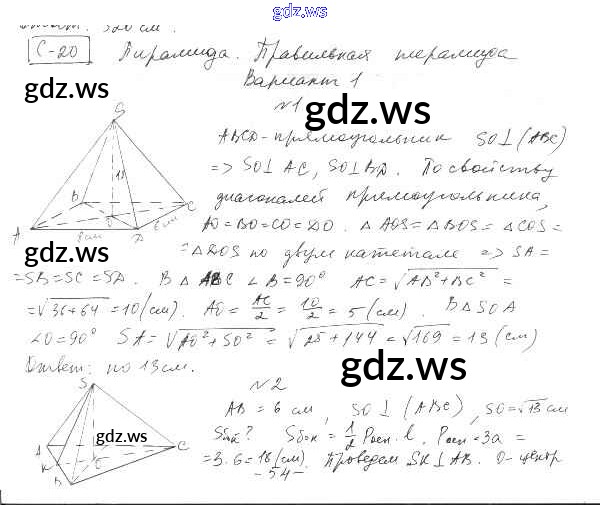 gdz.ws
Ответ: 320 см.
С-20 Пирамида. Правильная пирамида
Вариант 1
gdz.ws
gdz.ws
№1
S
ABCD - прямоугольник SO⊥(ABC)
=> SO⊥AC, SO⊥BD. По свойству
12
диагоналей прямоугольника,
B C
AO=BO=CO=DO. △AOS=△BOS=△COS=
A O D
8см 6см
gdz.ws
=△DOS по двум катетам => SA=
=SB=SC=SD. В △ABC ∠B=90° AC=√AB²+BC² =
=√36+64=10(см). AO=AC/2=10/2=5(см). В △SOA
∠O=90° SA=√AO²+SO²=√25+144=√169=13(см)
Ответ: по 13см.
gdz.ws
S
№2
AB=6 см, SO⊥(ABC), SO=√13 см
Sбок? Sбок=1/2 Pосн·l. Pосн=3a=
A O C
gdz.ws
K
B
=3·6=18(см). Проведем SK⊥AB. O-центр
-54-
gdz.ws